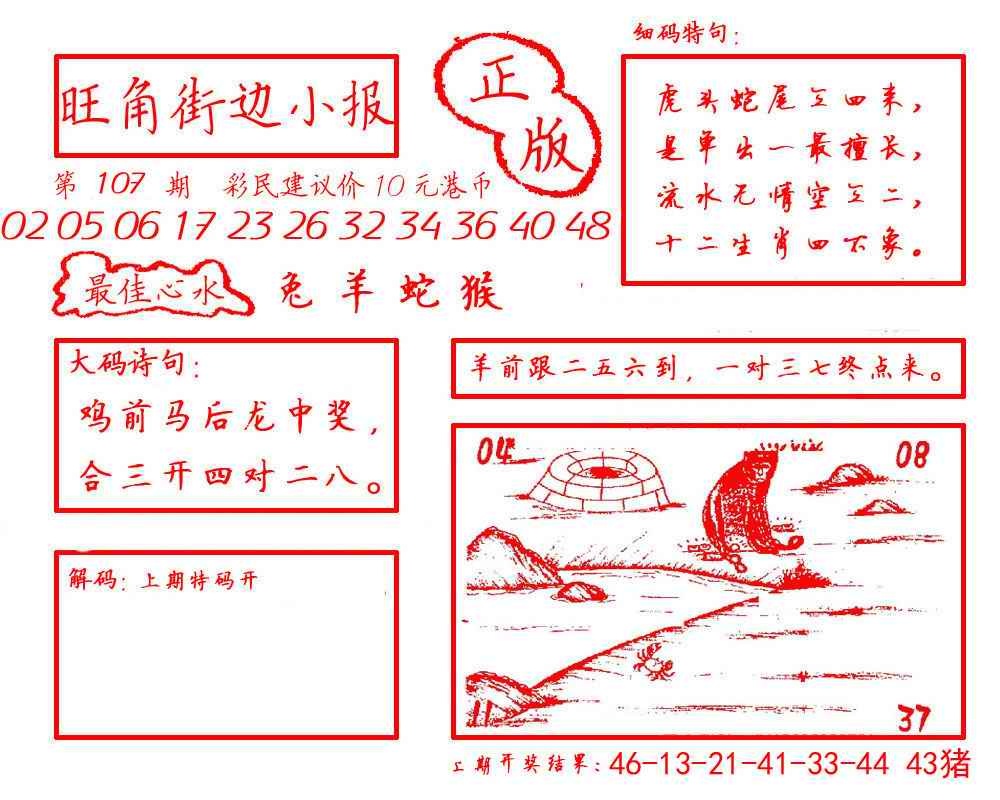 旺角街边小报
正版
第 107 期 彩民建议价 10 元港币
02 05 06 17 23 26 32 34 36 40 48
最佳心水 兔 羊 蛇 猴
细码特句：
虎头蛇尾至四来，
是单出一最擅长，
流水无情空至二，
十二生肖四不象。
大码诗句：
鸡前马后龙中奖，
合三开四对二八。
羊前跟二五六到，一对三七终点来。
解码：上期特码开
04
08
11
37
上期开奖结果：46-13-21-41-33-44 43猪